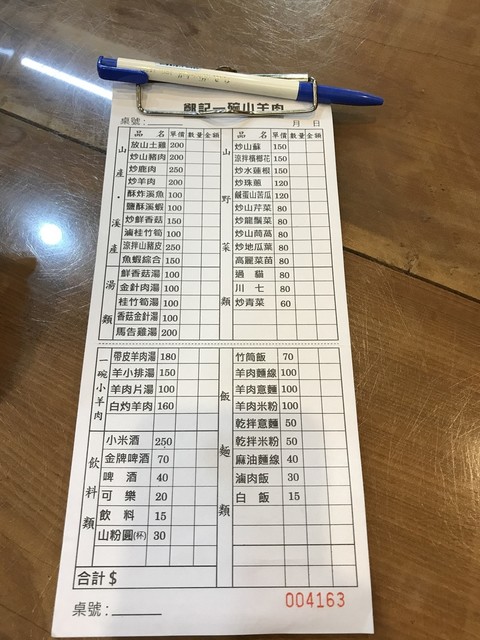 鄒記一碗小羊肉
桌號:
月 日
品 名 單價 數量 金額 品 名 單價 數量 金額
山產・溪產
放山土雞 200
炒山豬肉 200
炒鹿肉 250
炒羊肉 200
酥炸溪魚 100
鹽酥溪蝦 100
炒鮮香菇 150
滷桂竹筍 100
涼拌山豬皮 250
魚蝦綜合 150
湯類
鮮香菇湯 100
金針肉湯 100
桂竹筍湯 100
香菇金針湯 100
馬告雞湯 200
山野菜類
炒山蘇 150
涼拌檳榔花 150
炒水蓮根 150
炒珠蔥 120
鹹蛋山苦瓜 120
炒山芹菜 80
炒龍鬚菜 80
炒山茼萵 80
炒地瓜葉 80
高麗菜苗 80
過貓 80
川七 80
炒青菜 60
一碗小羊肉
帶皮羊肉湯 180
羊小排湯 150
羊肉片湯 100
白灼羊肉 160
飲料類
小米酒 250
金牌啤酒 70
啤酒 40
可樂 20
飲料 15
山粉圓(杯) 30
飯麵類
竹筒飯 70
羊肉麵線 100
羊肉意麵 100
羊肉米粉 100
乾拌意麵 50
乾拌米粉 50
麻油麵線 40
滷肉飯 30
白飯 15
合計$
桌號:
004163